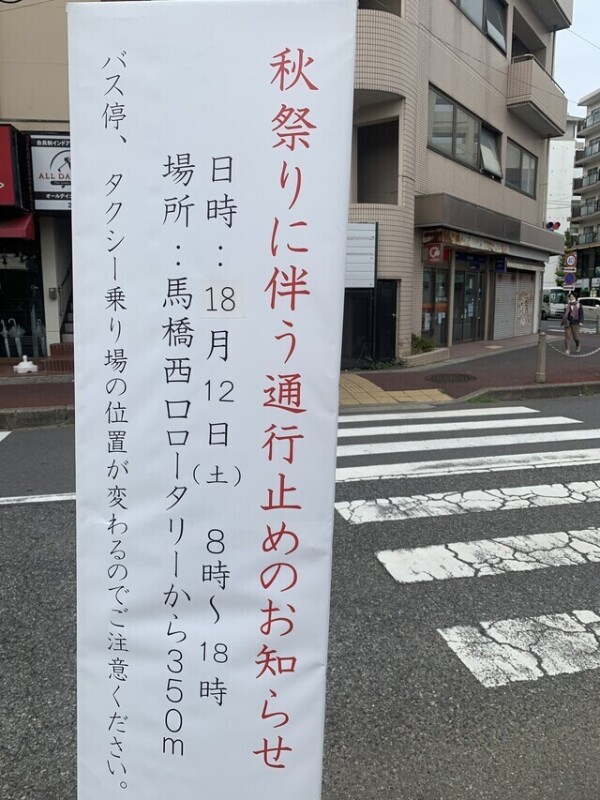 秋祭りに伴う通行止めのお知らせ
日時：18月12日（土） 8時〜18時
場所：馬橋西口ロータリーから350m
バス停、タクシー乗り場の位置が変わるのでご注意ください。
ALL DA